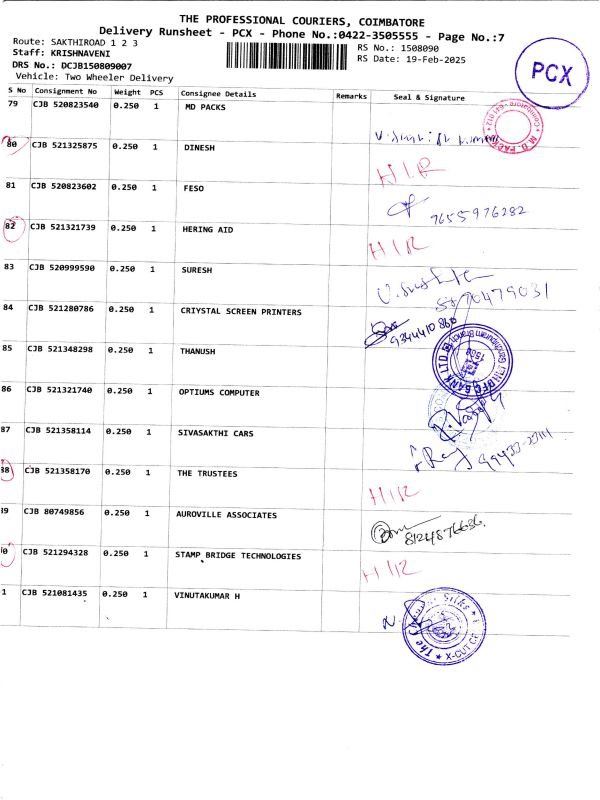 THE PROFESSIONAL COURIERS, COIMBATORE
Delivery Runsheet - PCX - Phone No.:0422-3505555 - Page No.:7
Route: SAKTHIROAD 1 2 3
Staff: KRISHNAVENI
DRS No.: DCJB150809007
Vehicle: Two Wheeler Delivery
RS No.: 1508090
RS Date: 19-Feb-2025
PCX
S No Consignment No Weight PCS Consignee Details Remarks Seal & Signature
79 CJB 520823540 0.250 1 MD PACKS
80 CJB 521325875 0.250 1 DINESH HIR
81 CJB 520823602 0.250 1 FESO 7655976282
82 CJB 521321739 0.250 1 HERING AID HIR
83 CJB 520999590 0.250 1 SURESH
84 CJB 521280786 0.250 1 CRIYSTAL SCREEN PRINTERS 9344410860
85 CJB 521348298 0.250 1 THANUSH
86 CJB 521321740 0.250 1 OPTIUMS COMPUTER
87 CJB 521358114 0.250 1 SIVASAKTHI CARS
88 CJB 521358170 0.250 1 THE TRUSTEES HIR
89 CJB 80749856 0.250 1 AUROVILLE ASSOCIATES 8124876686.
0 CJB 521294328 0.250 1 STAMP BRIDGE TECHNOLOGIES HIR
1 CJB 521081435 0.250 1 VINUTAKUMAR H